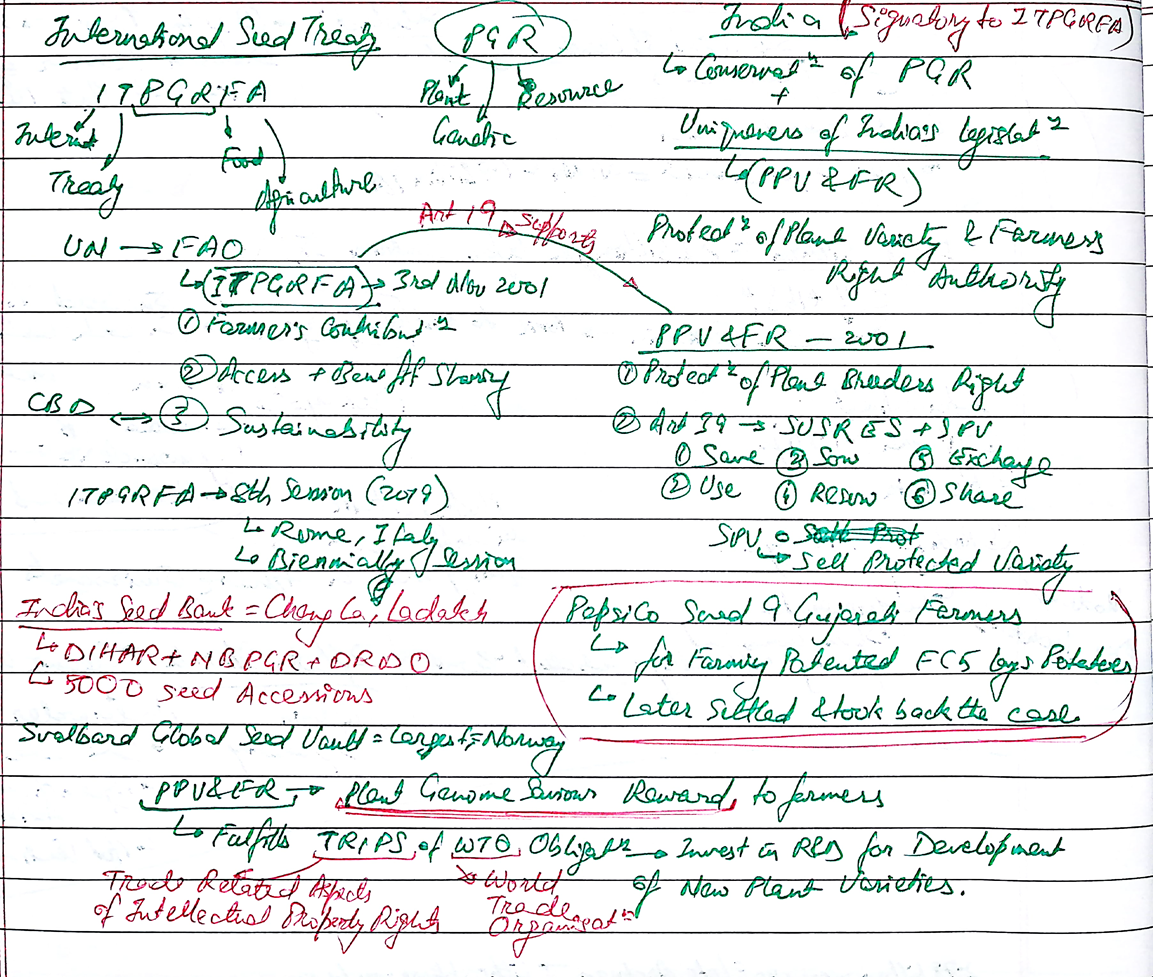 International Seed Treaty
ITPGRFA
Internat
Treaty
Food
Agriculture
PGR
Plant
Genetic
Resource
India (Signatory to ITPGRFA)
↳ Conservatⁿ of PGR
+
Uniqueness of India's legislatⁿ
↳ (PPV & FR)
Protectⁿ of Plant Variety & Farmers
Right Authority
UN → FAO
↳ (ITPGRFA) → 3rd Nov 2001
① Farmer's Contributⁿ
② Access + Benefit Sharing
CBD ↔ ③ Sustainability
Art 19 → supports
PPV & FR – 2001
① Protectⁿ of Plant Breeders Right
② Art 39 → SUSRES + SPV
① Save ③ Sow ⑤ Exchange
② Use ④ Resow ⑥ Share
SPV
↳ Sell Protected Variety
ITPGRFA → 8th Session (2019)
↳ Rome, Italy
↳ Biennially Session
India's Seed Bank = Chang La, Ladakh
↳ DIHAR + NBPGR + DRDO
↳ 5000 seed Accessions
PepsiCo Sued 9 Gujarati Farmers
↳ for Farming Patented FC5 lays Potatoes
↳ Later Settled & took back the case.
Svalbard Global Seed Vault = Largest = Norway
PPV & FR → Plant Genome Saviour Reward, to farmers
↳ Fulfills TRIPS of WTO Obligatⁿ → Invest in R&D for Development
of New Plant Varieties.
Trade Related Aspects
of Intellectual Property Rights
World
Trade
Organisatⁿ